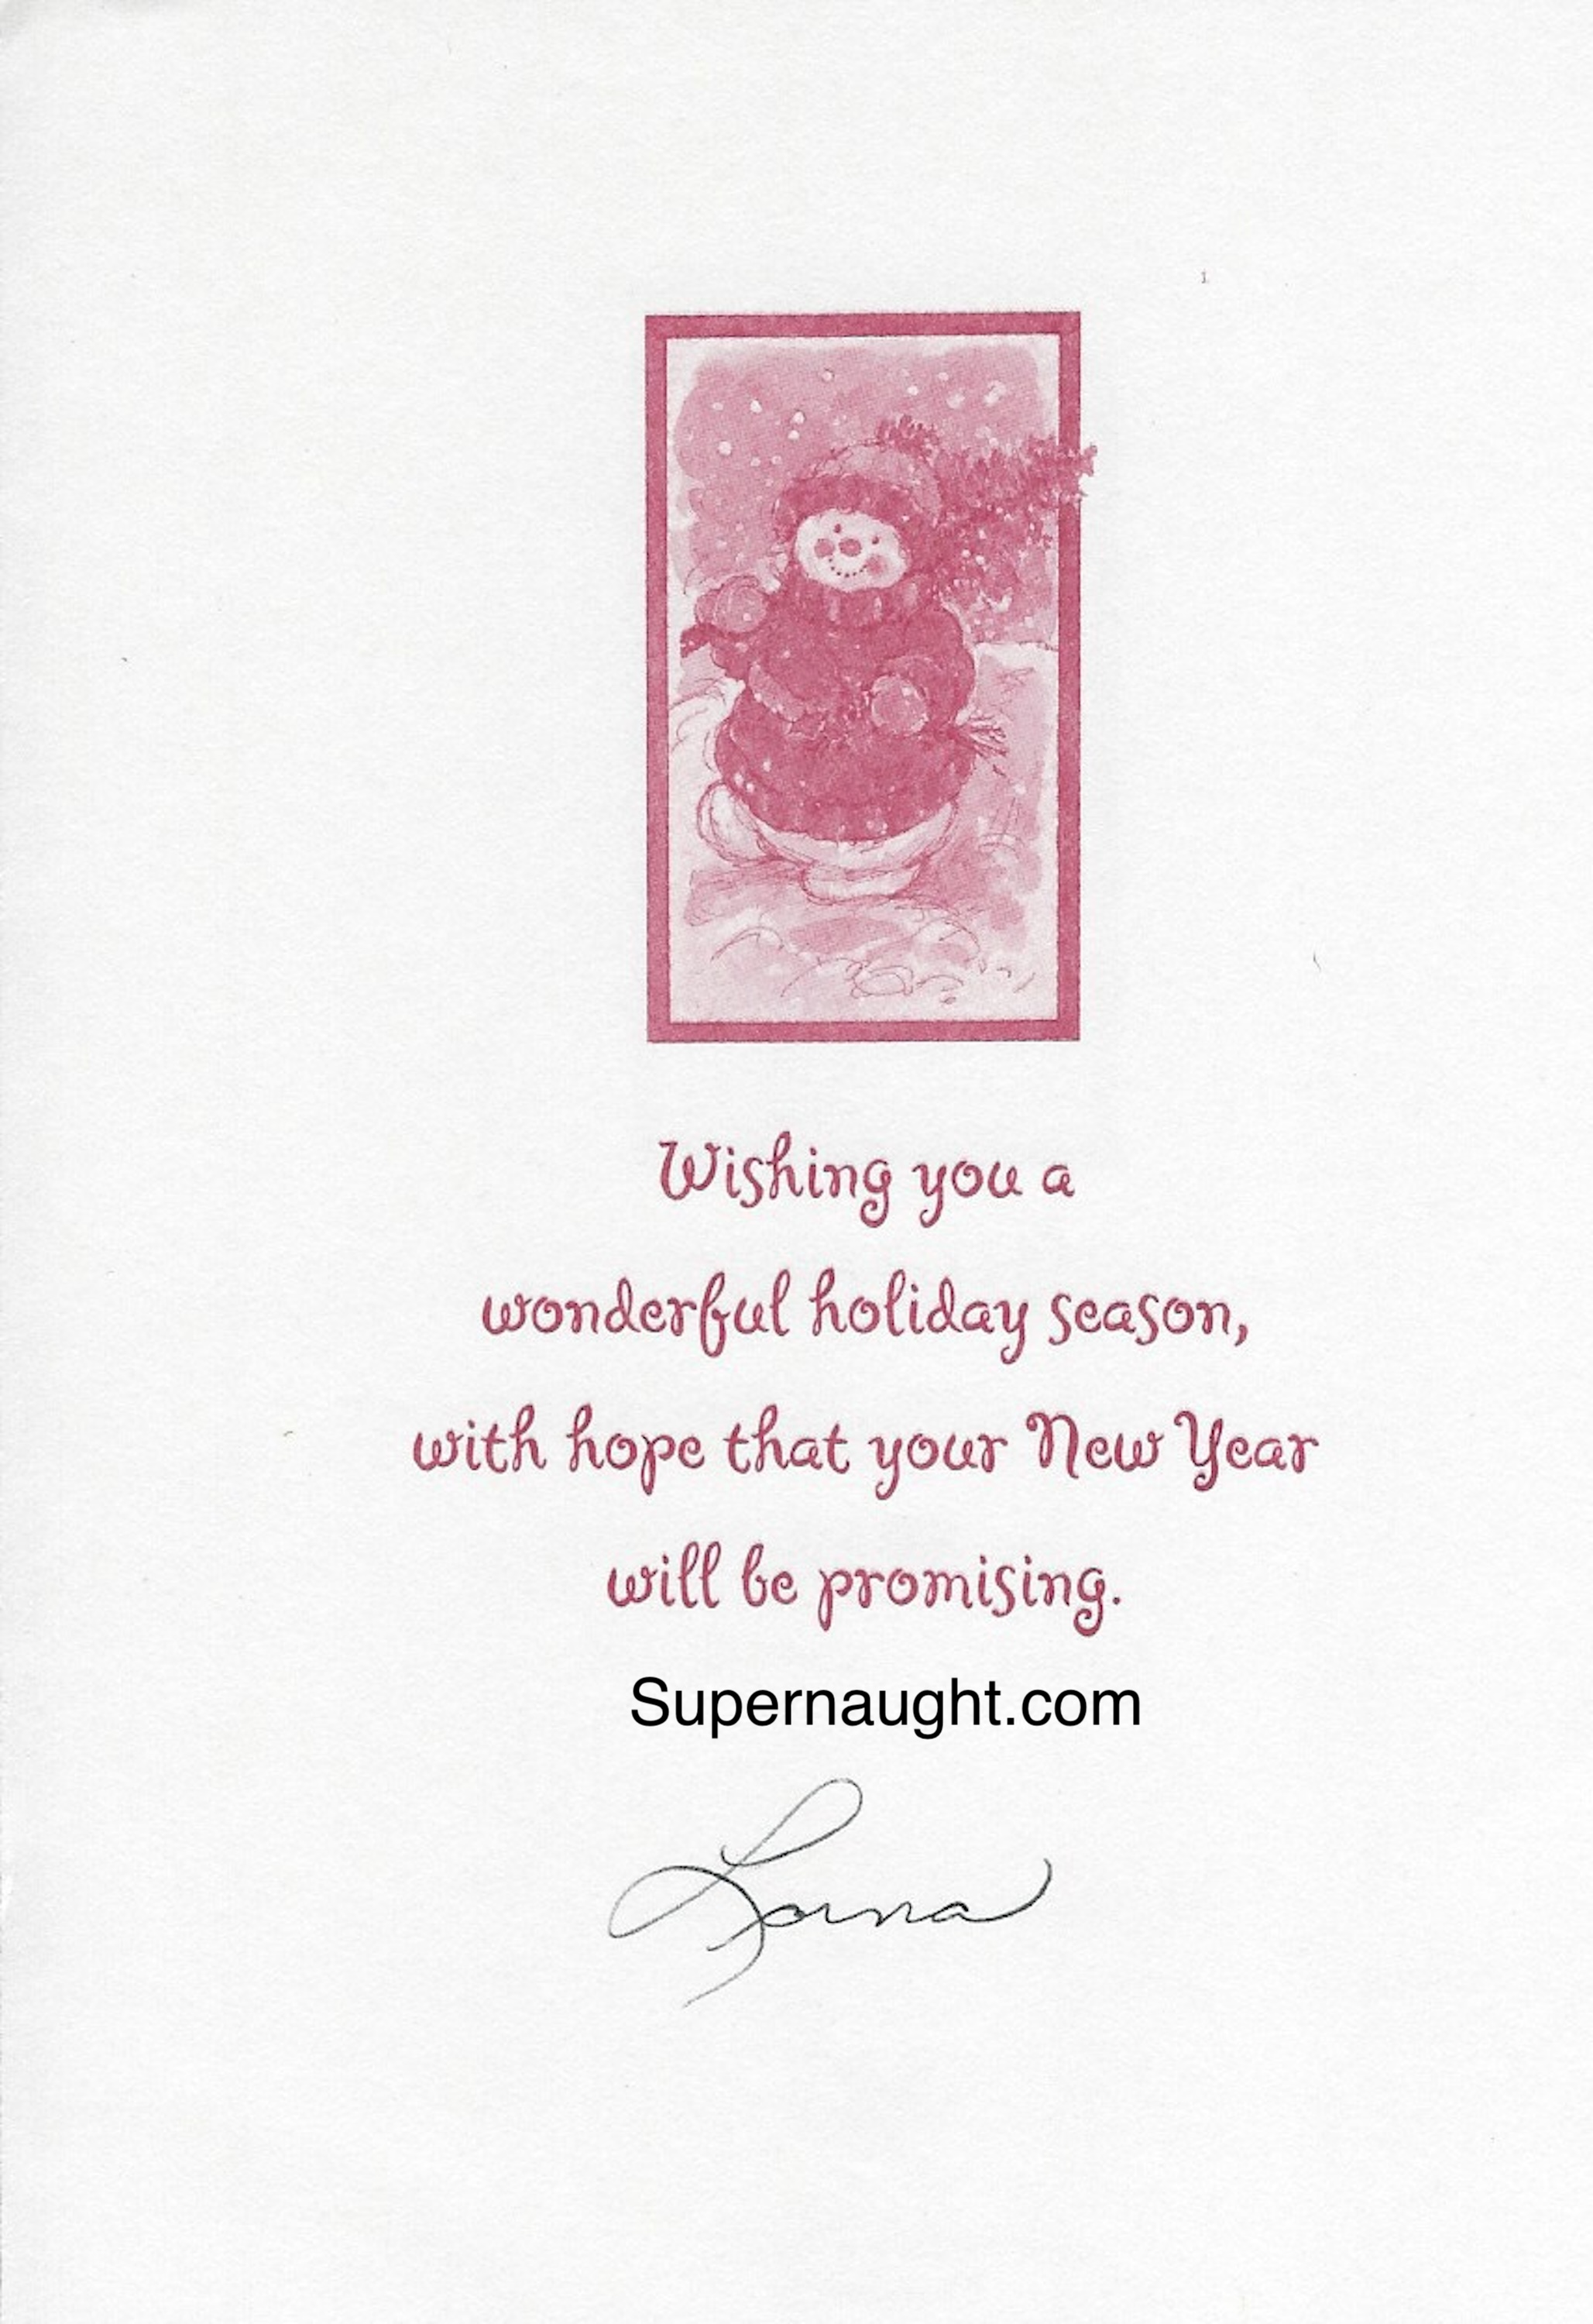 Wishing you a
wonderful holiday season,
with hope that your New Year
will be promising.
Supernaught.com
Lorna